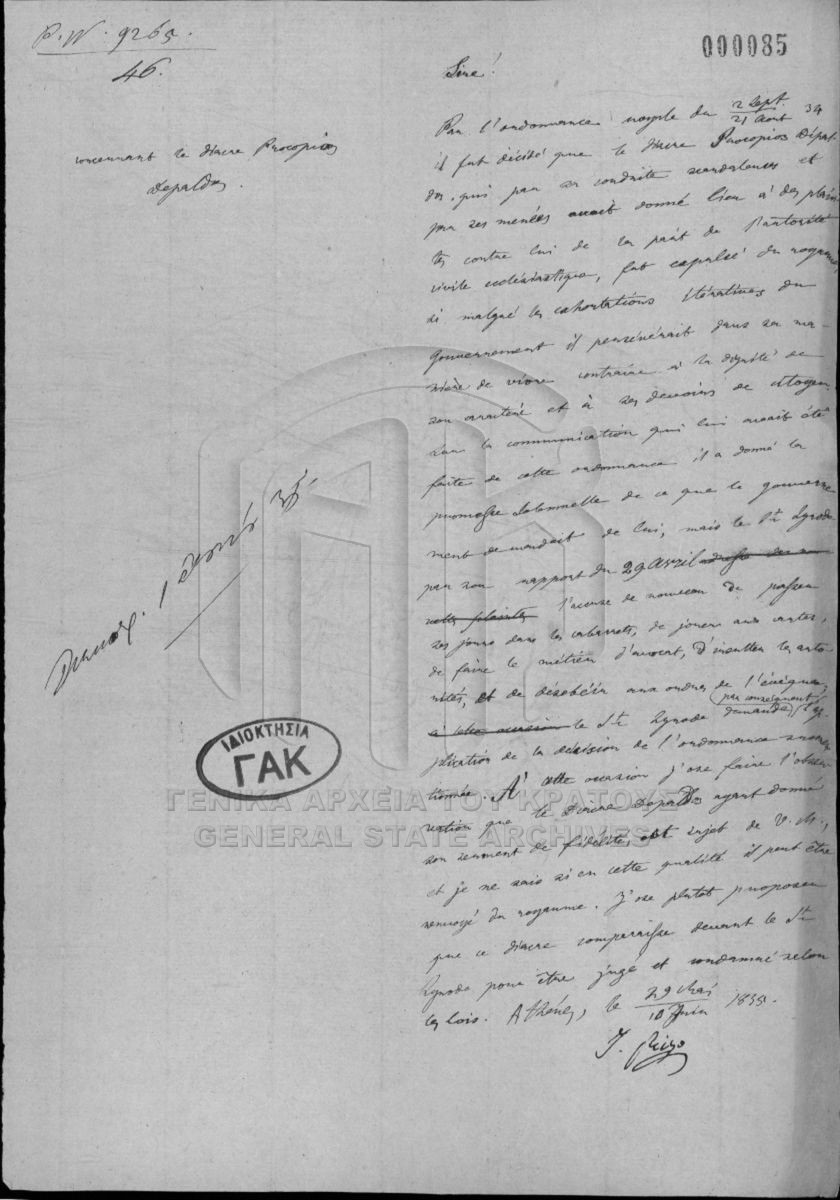 P. N. 9265.
46.
000085
concernant le diacre Procopios
Depaldos.
Sire!
Par l'ordonnance royale du 2 Sept. / 21 Aout 34
il fut décidé que le diacre Procopios Depal-
dos, qui par sa conduite scandaleuse et
par ses menées avait donné lieu à des plain-
tes contre lui de la part de l'autorité
civile ecclésiastique, fut expulsé du royaume
si malgré les exhortations itératives du
gouvernement il persévérait dans sa ma-
nière de vivre contraire à la dignité de
son caractère et à ses devoirs de citoyen.
Sur la communication qui lui avait été
faite de cette ordonnance il a donné la
promesse solennelle de ce que le gouverne
ment demandait de lui, mais le St. Synode
par son rapport du 29 Avril adresse des nou
velles plaintes l'accuse de nouveau de passer
ses jours dans les cabarets, de jouer aux cartes,
de faire le métier d'avocat, d'insulter les auto
rités, et de désobéir aux ordres de l'évêque,
le St. Synode demande (par conséquent) l'ap
plication de la décision de l'ordonnance susmen
tionnée. A cette occasion j'ose faire l'obser
vation que le Diacre Depaldos ayant donné
son serment de fidélité, est sujet de V. M.,
et je ne sais si en cette qualité il peut être
renvoyé du royaume. J'ose plutot proposer
que ce diacre comparaisse devant le St.
Synode pour être jugé et condamné selon
les lois. Athènes, le 29 Mai / 10 Juin 1835.
J. Rizo
ΙΔΙΟΚΤΗΣΙΑ
ΓΑΚ
ΓΕΝΙΚΑ ΑΡΧΕΙΑ ΤΟΥ ΚΡΑΤΟΥΣ
GENERAL STATE ARCHIVES